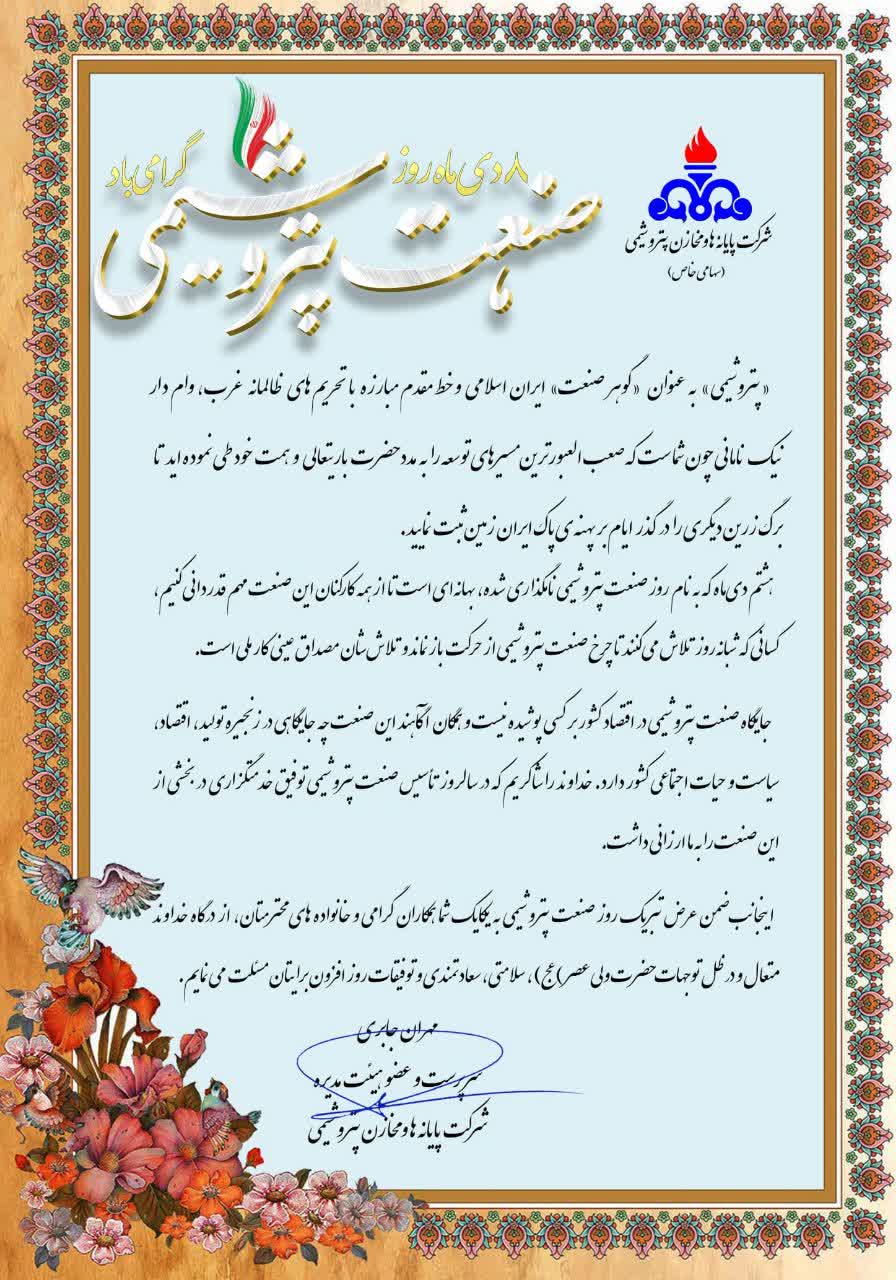 ۸ دی ماه روز
صنعت پتروشیمی
گرامی باد
شرکت پایانه ها و مخازن پتروشیمی
(سهامی خاص)
«پتروشیمی» به عنوان «گوهر صنعت» ایران اسلامی و خط مقدم مبارزه با تحریم های ظالمانه غرب، وام دار
نیک نامانی چون شماست که صعب العبورترین مسیرهای توسعه را به مدد حضرت باریتعالی و همت خود طی نموده اید تا
برگ زرین دیگری را در گذر ایام بر پهنه ی پاک ایران زمین ثبت نمایید.
هشتم دی‌ماه که به نام روز صنعت پتروشیمی نامگذاری شده، بهانه ای است تا از همه کارکنان این صنعت مهم قدردانی کنیم،
کسانی که شبانه روز تلاش می‌کنند تا چرخ صنعت پتروشیمی از حرکت باز نماند و تلاش‌شان مصداق عینی کار ملی است.
جایگاه صنعت پتروشیمی در اقتصاد کشور بر کسی پوشیده نیست و همگان آگاهند این صنعت چه جایگاهی در زنجیره تولید، اقتصاد،
سیاست و حیات اجتماعی کشور دارد. خداوند را شاکریم که در سالروز تأسیس صنعت پتروشیمی توفیق خدمتگزاری در بخشی از
این صنعت را به ما ارزانی داشت.
اینجانب ضمن عرض تبریک روز صنعت پتروشیمی به یکایک شما همکاران گرامی و خانواده های محترمتان، از درگاه خداوند
متعال و در ظل توجهات حضرت ولی عصر)عج)، سلامتی، سعادتمندی و توفیقات روز افزون برایتان مسئلت می نمایم.
مهران جابری
سرپرست و عضو هیئت مدیره
شرکت پایانه ها و مخازن پتروشیمی